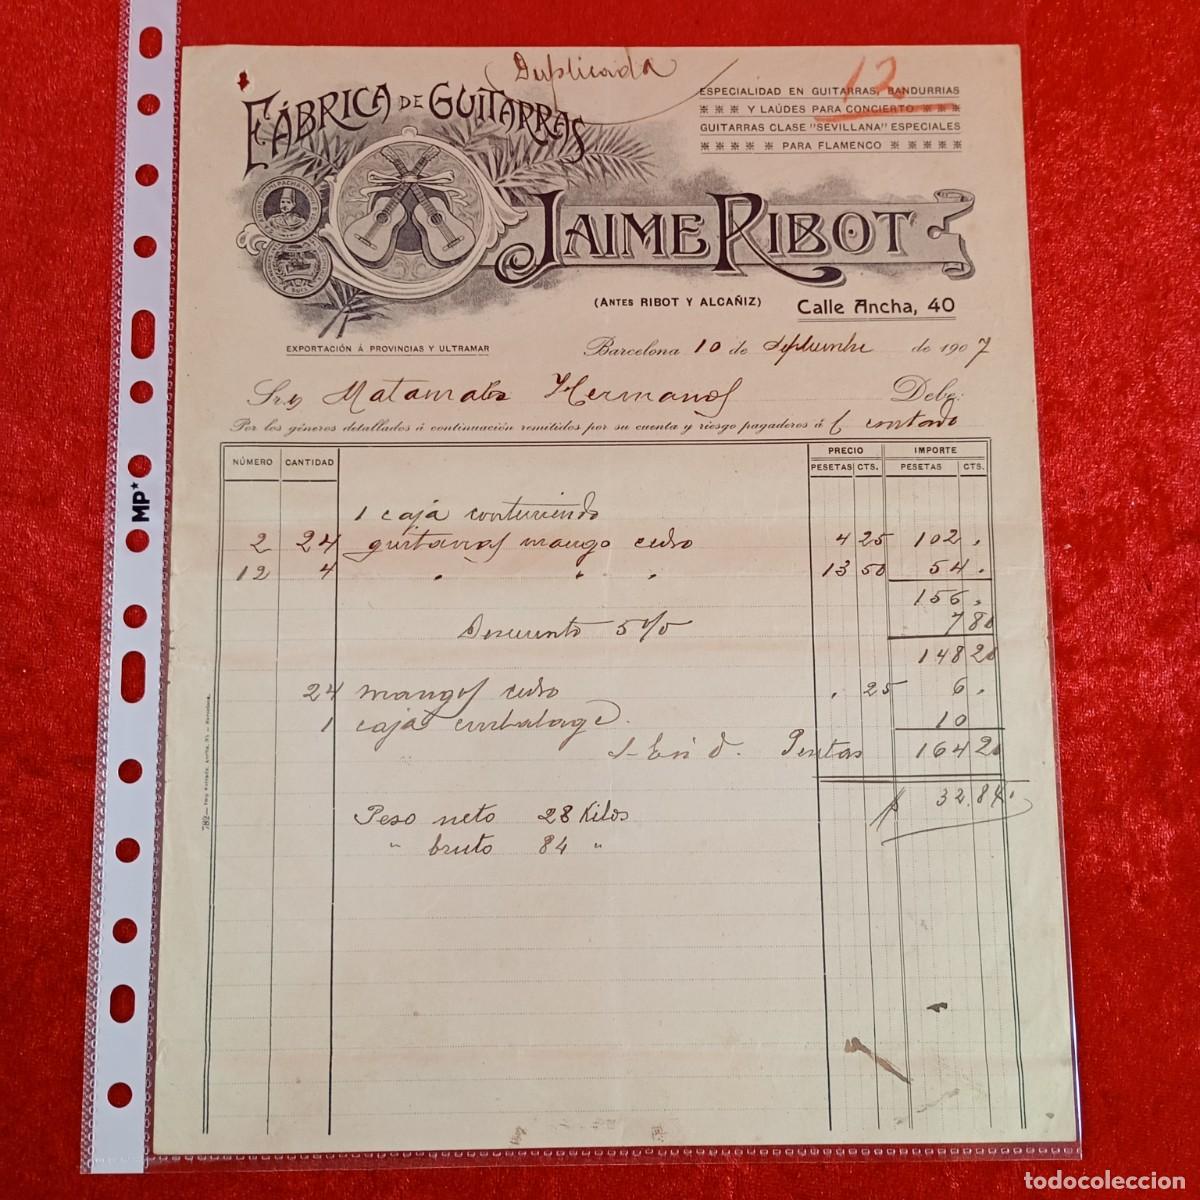 Duplicada
12
FÁBRICA DE GUITARRAS
ESPECIALIDAD EN GUITARRAS, BANDURRIAS
Y LAÚDES PARA CONCIERTO
GUITARRAS CLASE "SEVILLANA" ESPECIALES
PARA FLAMENCO
JAIME RIBOT
(ANTES RIBOT Y ALCAÑIZ)
Calle Ancha, 40
EXPORTACIÓN Á PROVINCIAS Y ULTRAMAR
Barcelona 10 de Septiembre de 1907
Sres Hermanos Debe:
Por los géneros detallados á continuación remitidos por su cuenta y riesgo pagaderos á contado
NÚMERO CANTIDAD PRECIO IMPORTE
PESETAS CTS. PESETAS CTS.
1 caja conteniendo
2 24 guitarras mango cedro 4 25 102 .
12 4 " " " 13 50 54 .
156 .
Descuento 5% 7 80
148 20
24 mangos cedro . 25 6 .
1 caja embalage. 10
S. E. ú O. Pesetas 164 20
$ 32.84.
Peso neto 28 Kilos
" bruto 84 "
MP
todocoleccion